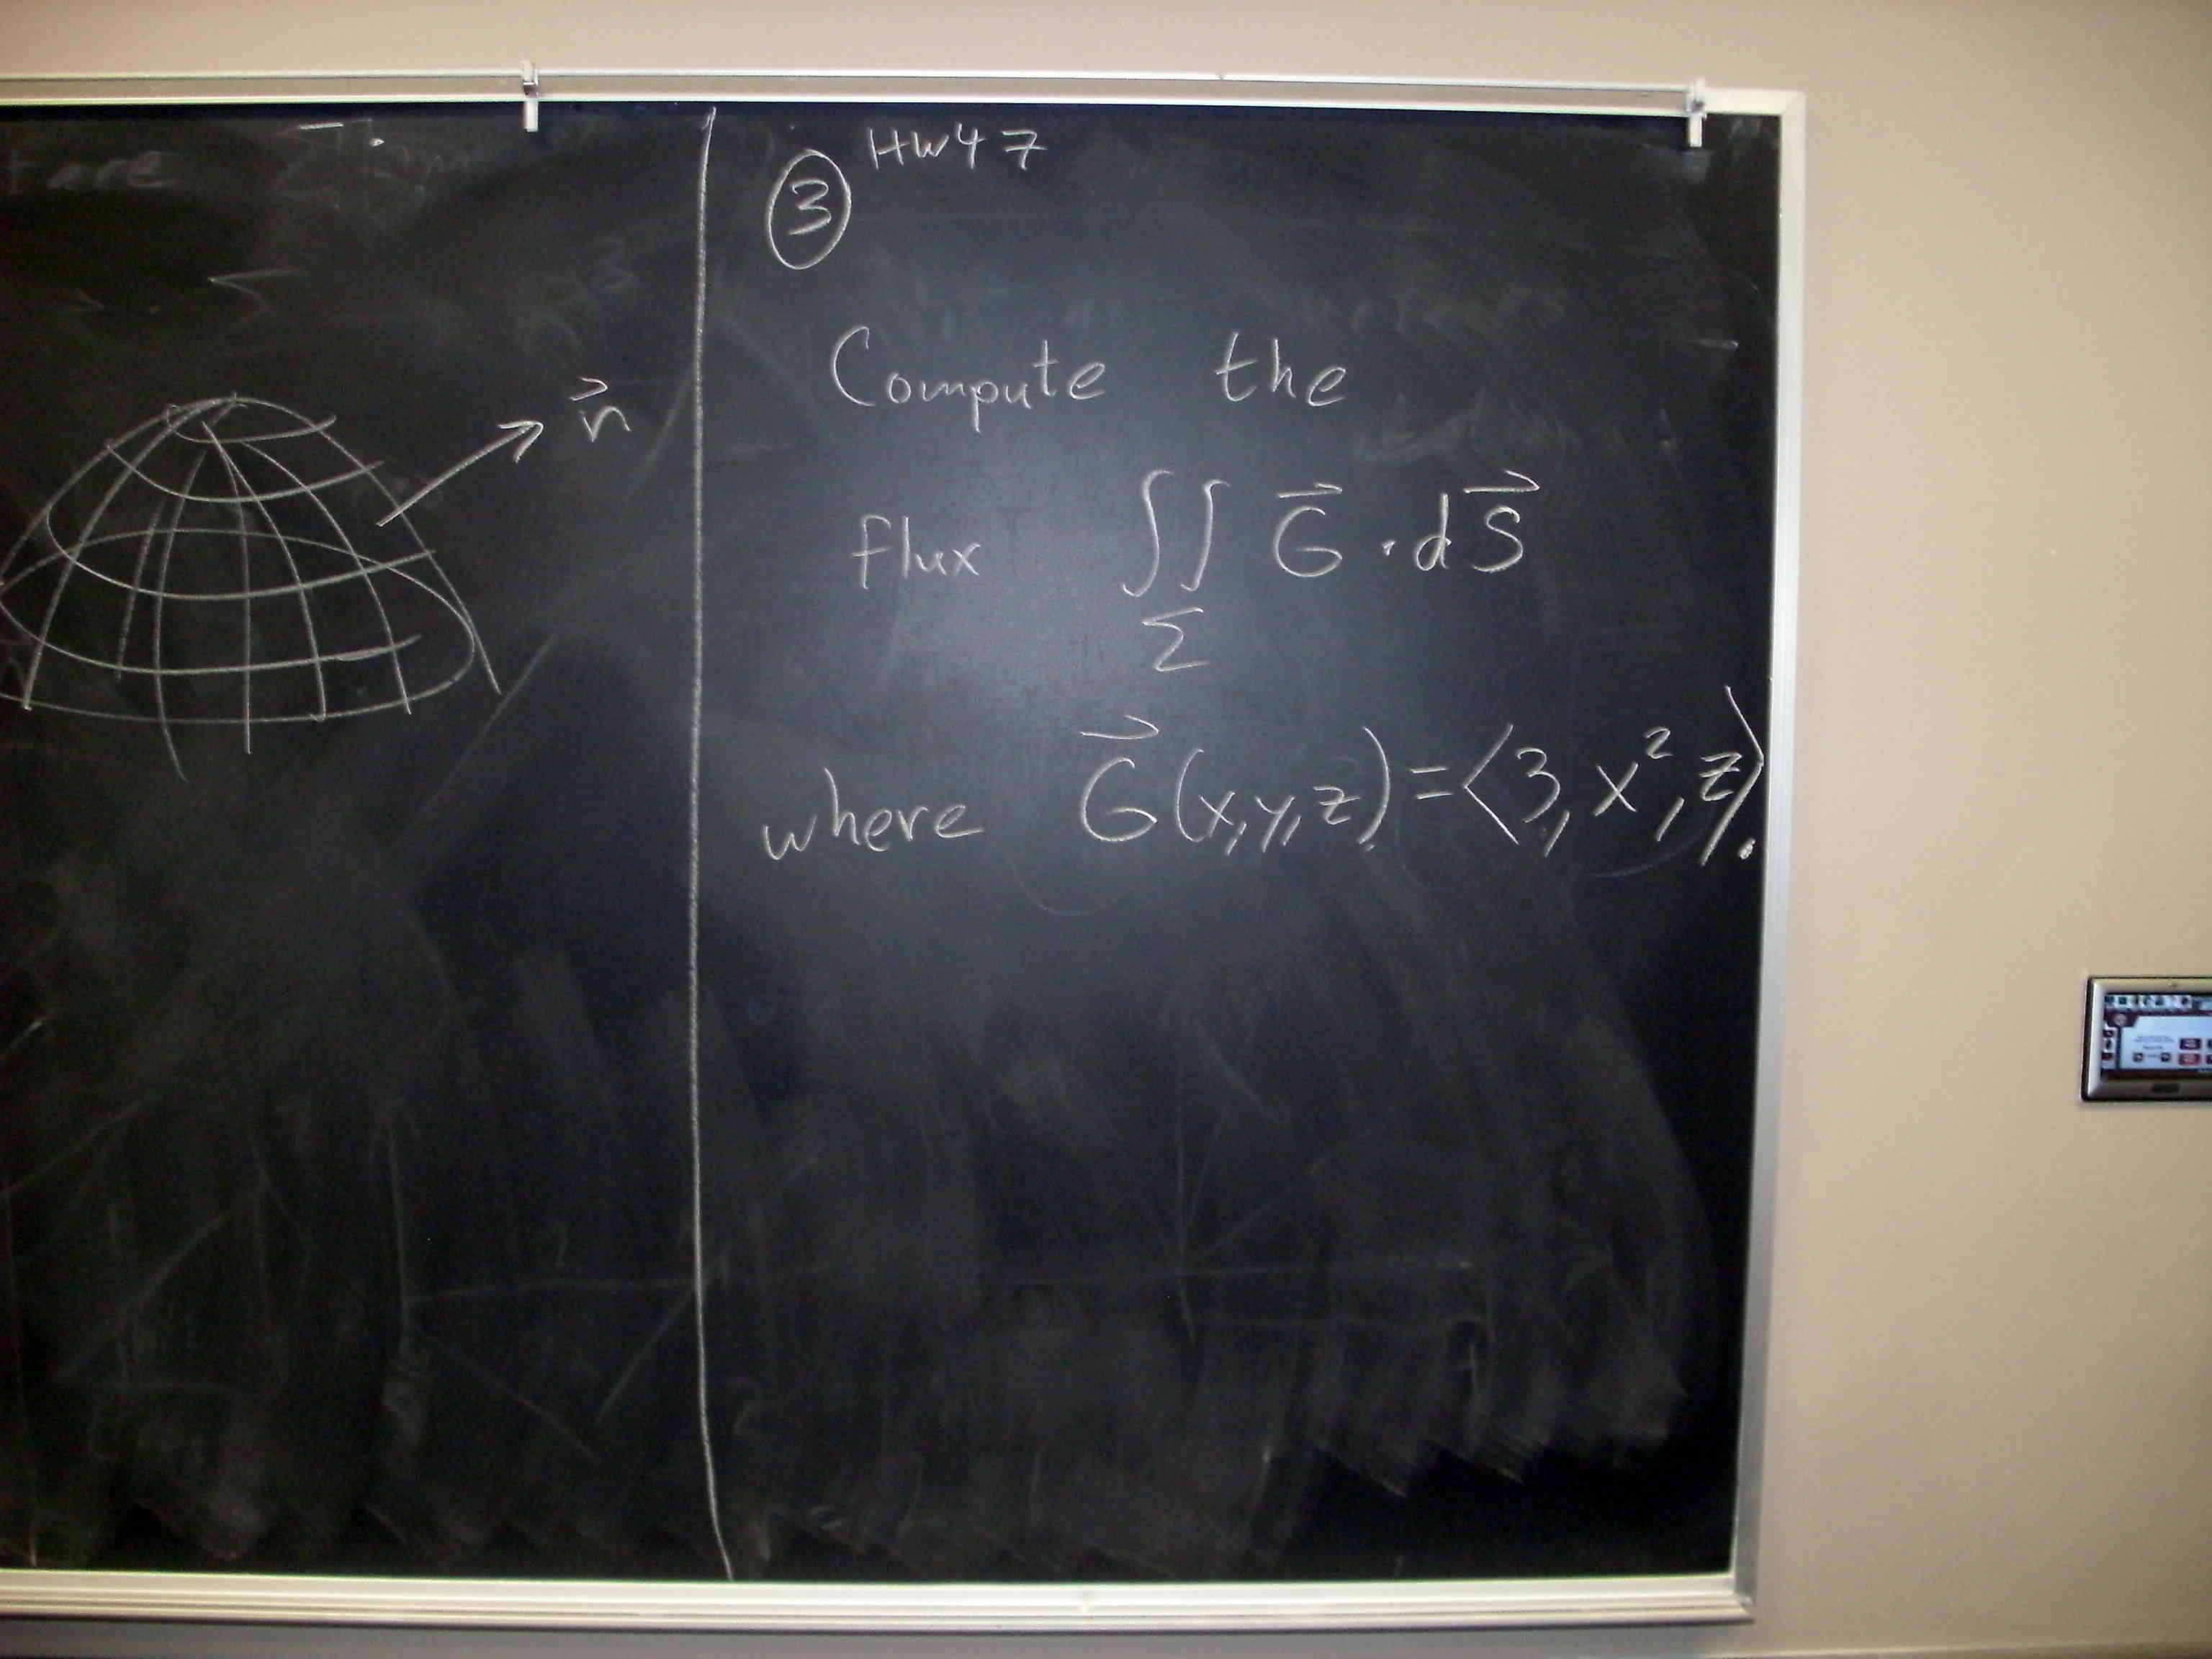 n⃗
③ HW47
Compute the
flux ∬ G⃗ · dS⃗
Σ
where G⃗(x,y,z)=⟨3, x², z⟩.